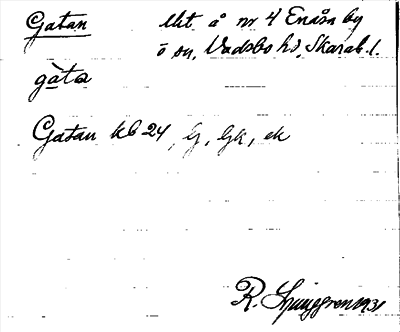 Gatan lht å nr 4 Enåsa by
o sn, Vadsbo hd, Skarab. l.
gàta
Gatan kb 24, G, Gk, ek
R. Ljunggren 1931